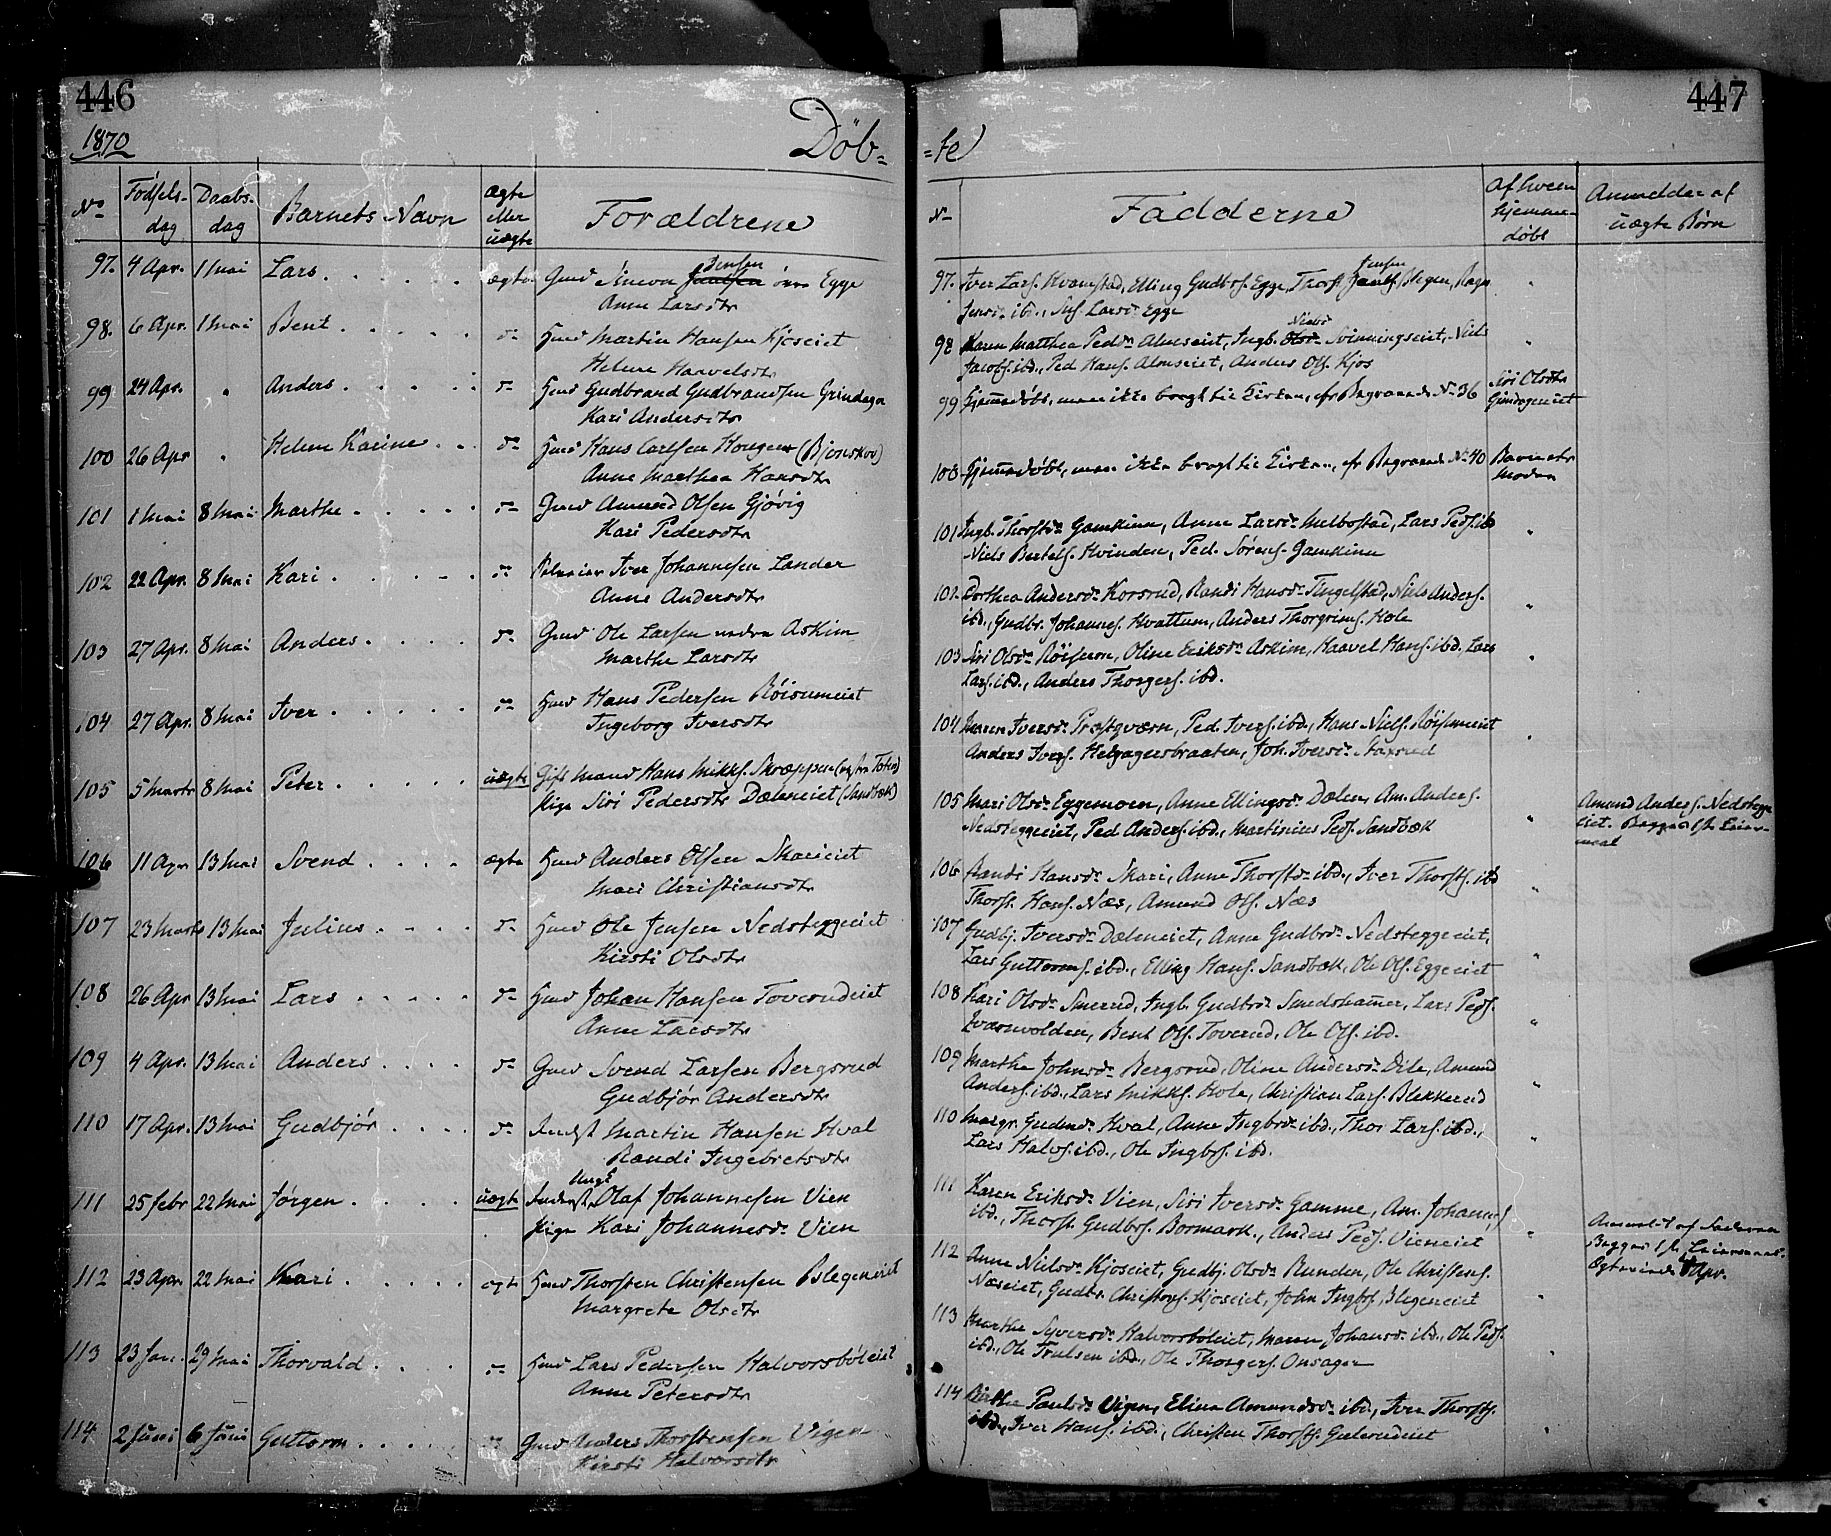 446
1870
Döb-
No
Fødsels-dag
Daabs-dag
Barnets Navn
ægte eller uægte
Forældrene
97. 4 Apr. 1 Mai Lars ægte Gmd Simen Jensen øvre Egge
Anne Larsdtr
98. 6 Apr. 1 Mai Bent do Hmd Martin Hansen Kjoseiet
Helene Haavelsdtr
99 24 Apr. " Anders do Hmd Gudbrand Gudbrandsen Grindager
Kari Andersdtr
100 26 Apr " Helene Karine do Hmd Hans Carlsen Haugen (Bjonskov)
Anne Marthea Hansdtr
101 1 Mai 8 Mai Marthe do Gmd Amund Olsen Gjøvig
Kari Pedersdtr
102 22 Apr. 8 Mai Kari do Iver Johannesen Lander
Anne Andersdtr
103 27 Apr. 8 Mai Anders do Gmd Ole Larsen nedre Askim
Marthe Larsdtr
104 27 Apr. 8 Mai Iver do Hmd Hans Pedersen Röisumeiet
Ingeborg Iversdtr
105 5 Marts 8 Mai Peter uægte Gift Mand Hans Mikkels. Skræppen (Toten)
Pige Siri Pedersdtr Dæleneiet (Sandbæk)
106 11 Apr 13 Mai Svend ægte Hmd Anders Olsen Skarieiet
Mari Christiansdtr
107 23 Marts 13 Mai Julius do Hmd Ole Jensen Nedreeggeeiet
Kirsti Olsdtr
108 26 Apr 13 Mai Lars do Hmd Johan Hansen Toverudeiet
Anne Larsdtr
109 4 Apr. 13 Mai Anders do Gmd Svend Larsen Bergsrud
Gudbjør Andersdtr
110 17 Apr. 13 Mai Gudbjør do Inderst Martin Hansen Hval
Randi Ingebretsdtr
111 25 Febr 22 Mai Jørgen uægte Inderst, Ungk Olaf Johannesen Vien
Pige Kari Johannesdr Vien
112 23 Apr. 22 Mai Kari ægte Hmd Thorsten Christensen Blegeneiet
Margrete Olsdtr
113 23 Jan. 29 Mai Thorvald do Hmd Lars Pedersen Halvorsböleiet
Anne Petersdtr
114 2 Juni 6 Juni Guttorm do Gmd Anders Thorstensen Vigen
Kirsti Halvorsdtr
447
-te
No
Fadderne
Af hvem hjemme-døbt
Anmelder af uægte Børn
97. Iver Lars. Kvamstad, Elling Gudbrs. Egge, Thorst. Jens. Blegen, Ragn.
Jensdr ibd., Larsdr Egge
98 Karen Mathea Pedsdr Almseiet, Ingb. Nielsdr Svinningseiet, Niels
Jacobs. ibd., Ped. Hans. Almseiet, Anders Ols. Kjos
99 Hjemmedøbt, men ikke bragt til Kirken, cfr Begravede No 36 Siri Olsdtr
Grindageneiet
100 Hjemmedøbt, men ikke bragt til Kirken, cfr Begravede No 40 Barnets
Moder
101 Ingb. Thorstsdr Gamkinn, Anne Larsdr Melbostad, Lars Peds. ibd
Niels Bertels. Hvinden, Ped. Sørens. Gamkinn
102 Dorthea Andersdr Korsrud, Randi Hansdr Tingelstad, Niels Anders.
ibd., Gudbr. Johannes. Hvattum, Anders Thorgrims. Hole
103 Siri Olsdr Röisum, Oline Eriksdr Askim, Haavel Hans. ibd. Lars
Lars. ibd., Anders Thorgers. ibd.
104 Maren Iversdr Prestqværn, Ped. Ivers. ibd., Hans Niels. Röisumeiet
Anders Ivers. Helgagersbraaten, Joh. Iversdr
105 Mari Olsdr Eggemoen, Anne Ellingsdr Dælen, Am. Anders.
Nedreeggeeiet, Ped. Anders. ibd., Martinius Peds. Sandbæk
Amund Anders. Nedreegge
eiet. Begges 1ste Leier-
maal
106 Randi Hansdr Skari, Anne Thorstsdr ibd., Iver Thorsts. ibd
Thorst. Hans. Næs, Amund Ols. Næs
107 Gudbj. Iversdr Dæleneiet, Anne Gudbrsdr Nedreeggeeiet,
Lars Guttorms. ibd., Elling Hans. Sandbæk, Ole Ols. Eggeeiet
108 Kari Olsdr Smerud, Ingb. Gudbrsdr Smedshammer, Lars Peds.
Kværnvolden, Bent Ols. Toverud, Ole Ols. ibd.
109 Marthe Johnsdr Bergsrud, Oline Andersdr Dile, Amund
Anders. ibd., Lars Mikkels. Hole, Christian Lars. Blekkerud
110 Margr. Gudmdr Hval, Anne Ingbrsdr ibd., Thor Lars. ibd.,
Lars Halvs. ibd., Ole Ingbrs. ibd.
111 Karen Eriksdr Vien, Siri Iversdr Gamme, Am. Johanns.
ibd., Thorst. Gudbrs. Bormark., Anders Peds. Vieneiet
Anmeldt af Faderen
Begges 1ste Leiermaal.
Apr.
112 Anne Nielsdr Kjoseiet, Gudbj. Olsdr Runden, Ole Christens.
Næseiet, Gudbr. Christens. Kjoseiet, John Ingbrs. Blegeneiet
113 Marthe Syversdr Halvorsböleiet, Maren Johansdr ibd., Ole Peds.
ibd., Ole Trulsen ibd., Ole Thorgers. Onsager
114 Berthe Paulsdr Vigen, Eline Amundsdr ibd., Iver Thorsts.
ibd., Iver Hans. ibd., Christen Thorsts.